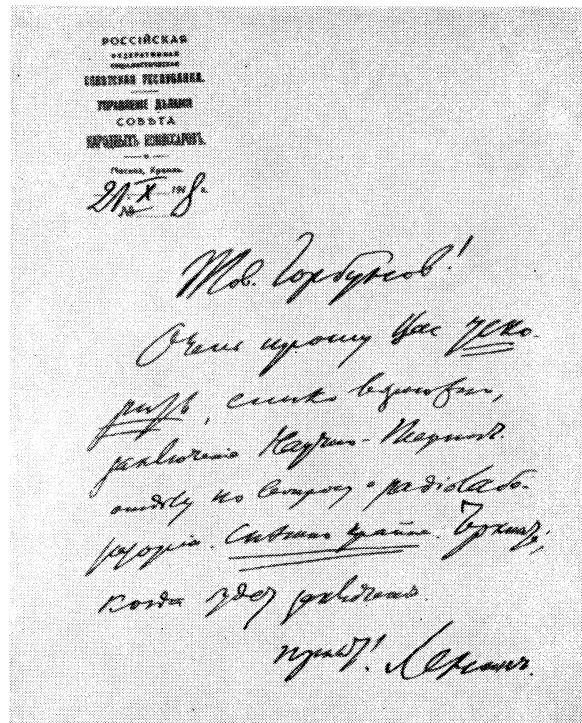 РОССІЙСКАЯ
ФЕДЕРАТИВНАЯ
СОЦІАЛИСТИЧЕСКАЯ
СОВѢТСКАЯ РЕСПУБЛИКА.
УПРАВЛЕНІЕ ДѢЛАМИ
СОВѢТА
НАРОДНЫХЪ КОМИССАРОВЪ.
Москва, Кремль.
21. X 1918 г.
№
Тов. Горбунов!
Очень прошу Вас уско-
рить, елико возможно,
заключение Научно-Технич.
отдела по вопросу о радиолабо-
ратории. Спешно крайне. Черкните,
когда будет заключение.
Привет! Ленин.